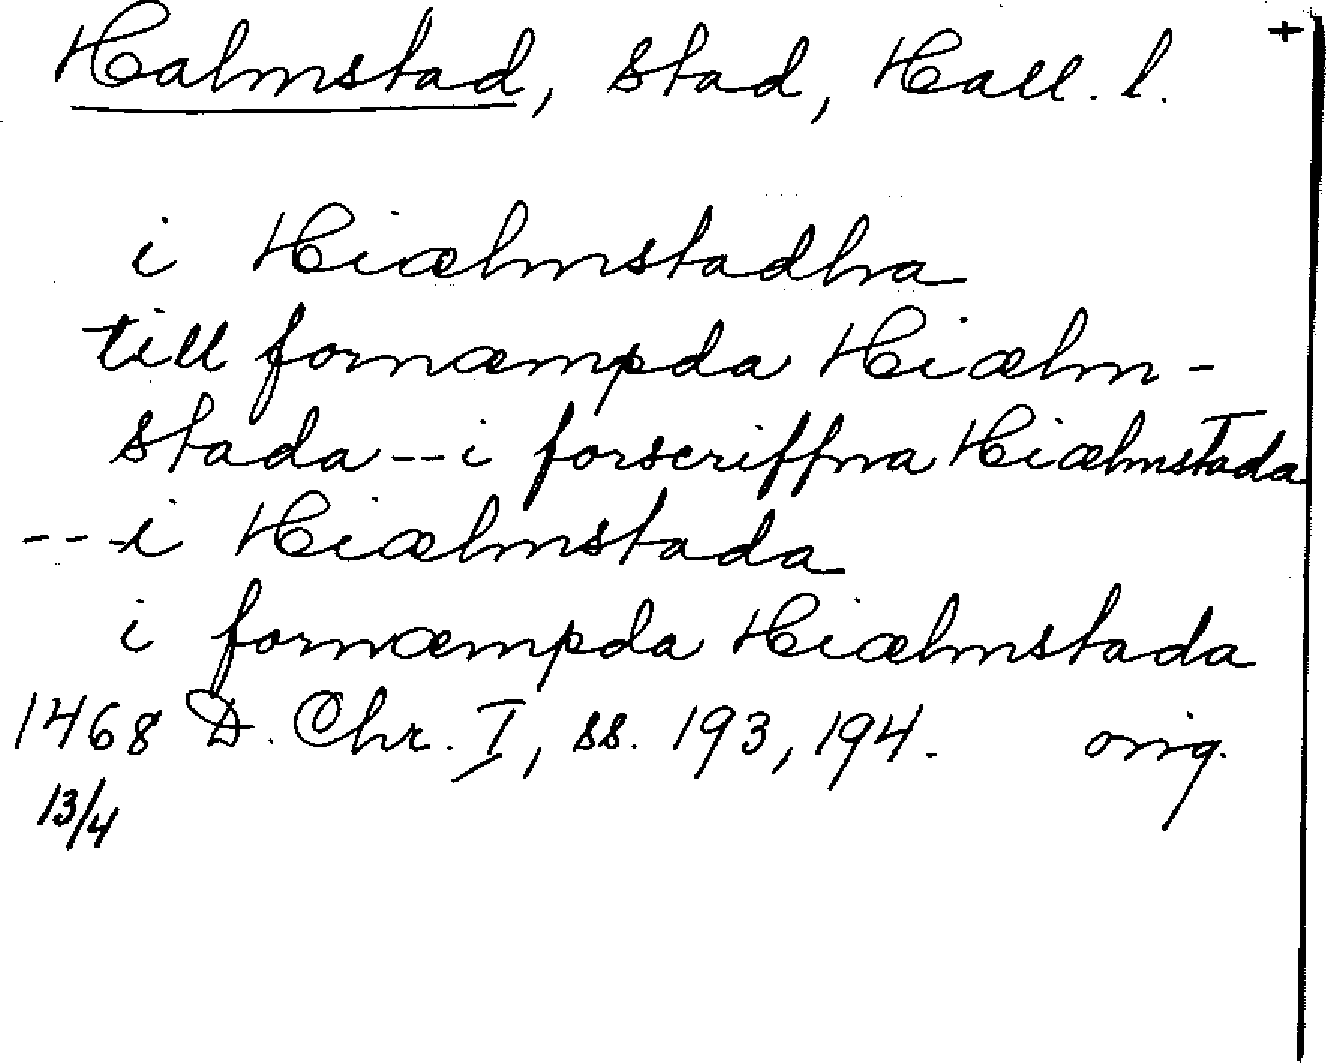 Halmstad, stad, Hall. l. +
i Hiælmstadha
till fornæmpda Hiælm-
stada -- i forscriffna Hiælmstada
--- i Hiælmstada
i fornæmpda Hiælmstada
1468 D. Chr. I, ss. 193, 194. orig.
13/4